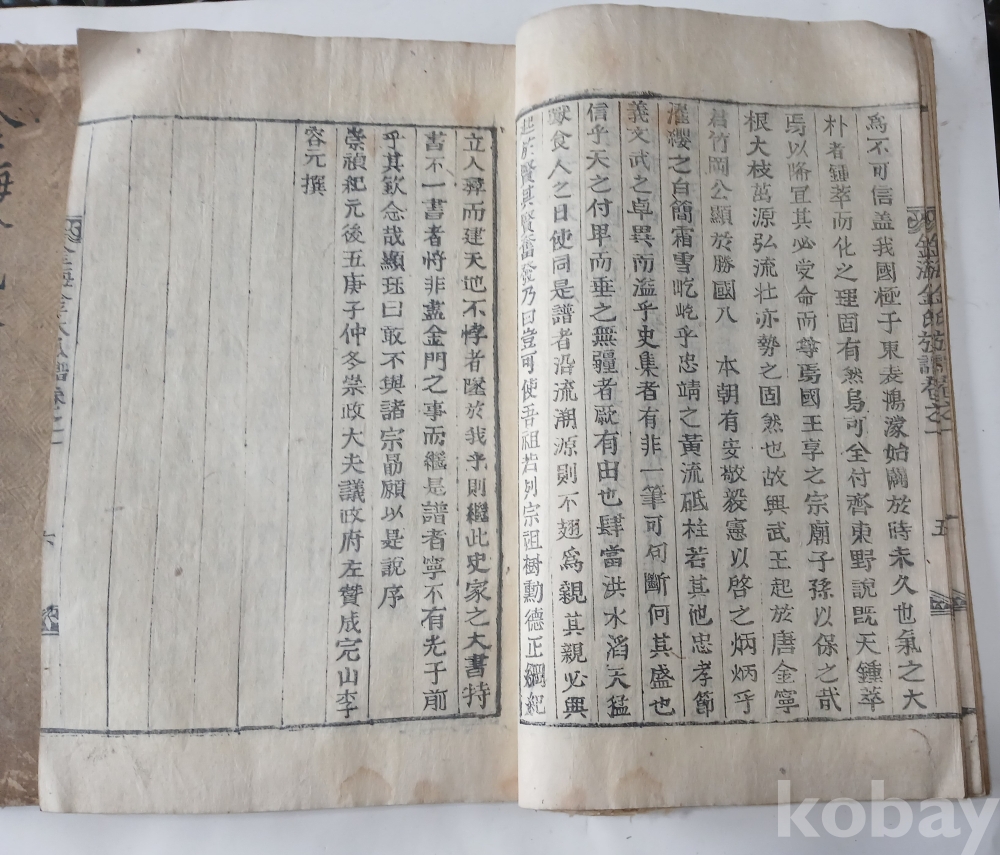 爲不可信盖我國極于東表鴻濛始闢於時未久也氣之大
朴者鍾萃而化之理固有然烏可全付齊東野說旣天鍾萃
焉以降宜其必受命而尊焉國王享之宗廟子孫以保之哉
根大枝萬源弘流壯亦勢之固然也故興武王起於唐金寧
君竹岡公顯於勝國八 本朝有安敬毅憲以啓之炳炳乎
濯纓之白簡霜雪屹屹乎忠靖之黃流砥柱若其他忠孝節
義文武之卓異而溢乎史集者有非一筆可句斷何其盛也
信乎天之付畀而垂之無疆者厥有由也肆當洪水滔天猛
獸食人之日使同是譜者沿流溯源則不翅爲親其親必興
起於賢其賢奮發乃曰豈可使吾祖若列宗祖樹勳德正綱紀
金海金氏族譜卷之一
五
立人尋而建天地不悖者墜於我乎則繼此史家之大書特
書不一書者將非盡金門之事而繼是譜者寧不有光于前
乎其欽念哉顯珏曰敢不與諸宗勗願以是說序
崇禎紀元後五庚子仲冬崇政大夫議政府左贊成完山李
容元撰
六
kobay